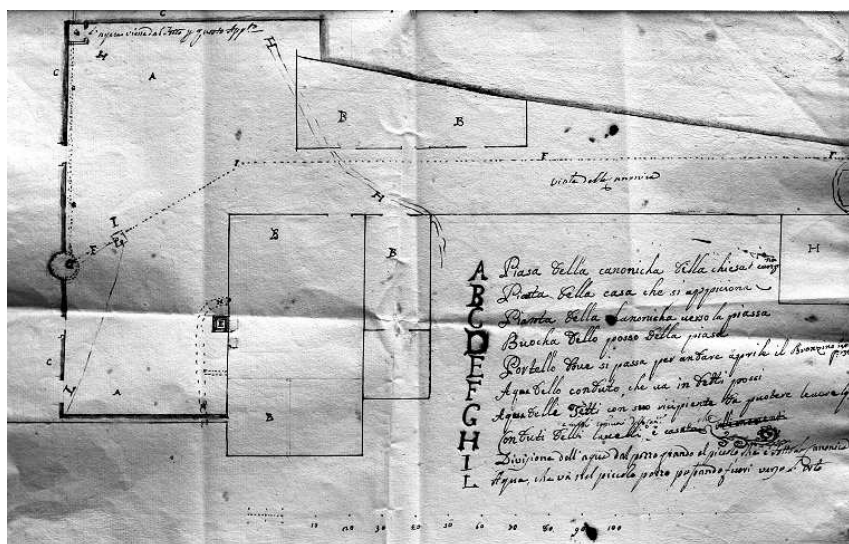 C
L'aqua viene dal Tetto p questo
H
A
C
H
B B
F
F
viale della canonica
I
H
I
E
B
B
H
L
C
A
B
A Piasa della canonicha della chiesa
B Pianta della casa che si apposiona
C Pianta della Canonicha verso la piassa
D Buocha dello posso della piasa
E Portello dove si passa per andare aprile il Bronzino
F Aqua dello conduto, che va in detti possi
G Aqua delle Tetti con suo recipiente da puotere levare
H Conduti delli
I Divisione dell'aqua dal pozzo grando al picolo che è sotto la Canonica
L Aqua, che và nel piccolo pozzo passando fuori verso
10 20 30 40 50 60 70 80 90 100